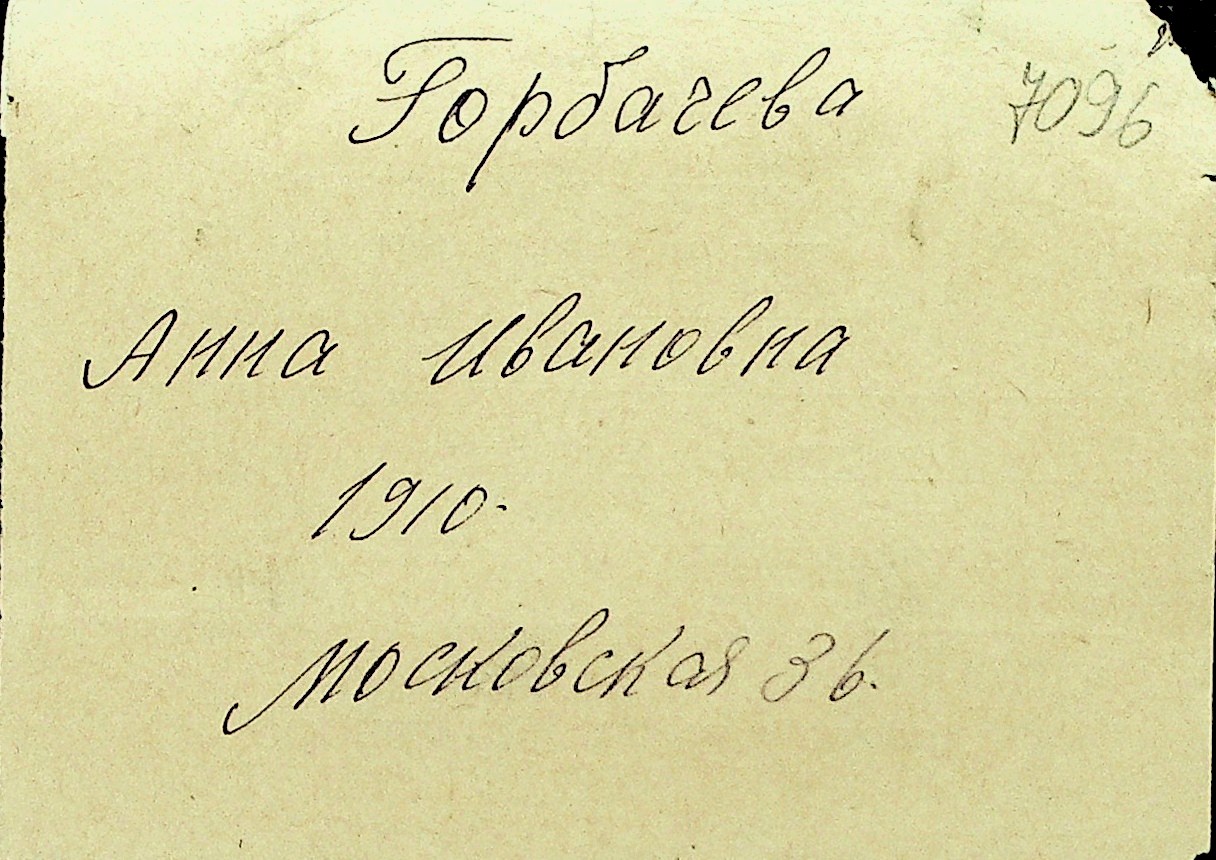 Горбачева 7096
Анна Ивановна
1910.
Московская 36.